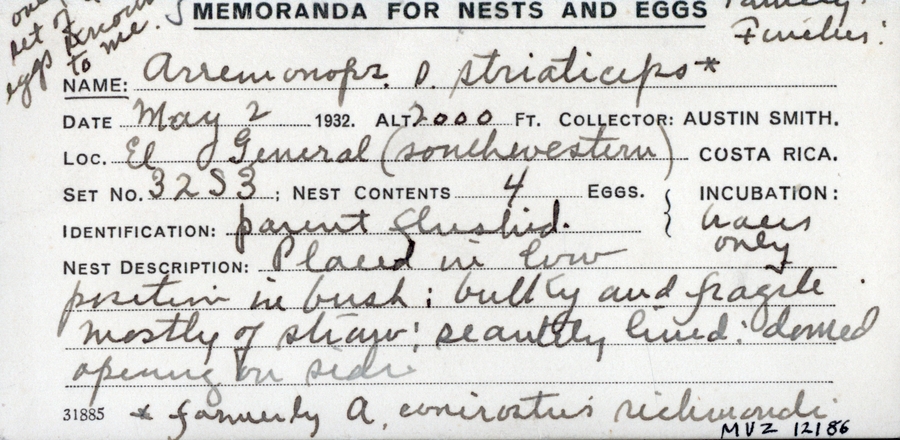 set of
eggs known
to me.
MEMORANDA FOR NESTS AND EGGS
Family:
NAME: Arremonops. striaticeps*
DATE May 2 1932. ALT 2000 FT. COLLECTOR: AUSTIN SMITH.
LOC. El General (southwestern) COSTA RICA.
SET NO. 3283; NEST CONTENTS 4 EGGS. { INCUBATION:
IDENTIFICATION: parent flushed. traces
only
NEST DESCRIPTION: Placed in low
position in bush; bulky and fragile
mostly of straw; scantily lined: domed
opening on side
31885 * formerly A. conirostris richmondi
MVZ 12186